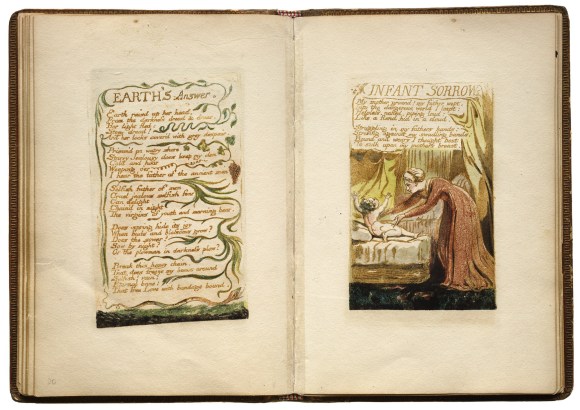 EARTH'S Answer.
Earth rais'd up her head,
From the darkness dread & drear.
Her light fled:
Stony dread!
And her locks cover'd with grey despair.
Prison'd on watry shore
Starry Jealousy does keep my den
Cold and hoar
Weeping o'er
I hear the father of the ancient men
Selfish father of men
Cruel jealous selfish fear
Can delight
Chain'd in night
The virgins of youth and morning bear.
Does spring hide its joy
When buds and blossoms grow?
Does the sower?
Sow by night?
Or the plowman in darkness plow?
Break this heavy chain,
That does freeze my bones around
Selfish! vain!
Eternal bane!
That free Love with bondage bound.
INFANT SORROW
My mother groand! my father wept.
Into the dangerous world I leapt:
Helpless, naked, piping loud:
Like a fiend hid in a cloud.
Struggling in my fathers hands:
Striving against my swadling bands:
Bound and weary I thought best
To sulk upon my mothers breast.